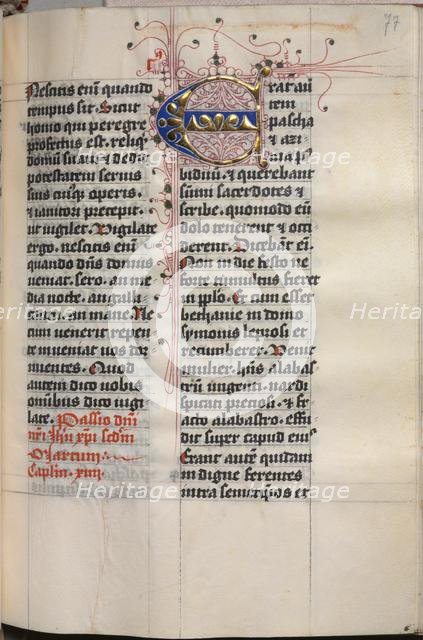 77
Nescitis eni quando
tempus sit. Sicut
homo qui peregre
profectus est. reliqt
domu sua. & dedit
potestatem servis
suis cuiusq operis.
& ianitori precepit
ut vigilet. Vigilate
ergo. nescitis eni
quando dns domus
veniat. sero. an me
dia nocte. an galli
cantu. an mane. Ne
cum venerit repen
te inveniat vos dor
mientes. Quod
autem dico vobis
omnibus dico vigi
late. Passio dni
nri ihu xpi scdm
Marcum.
Caplm. xiiii.
Erat au
tem
pascha
& azi
ma p
biduu. & querebant
sumi sacerdotes &
scribe. quomodo eu
dolo tenerent & occi
derent. Dicebant eni.
Non in die festo ne
forte tumultus fieret
in pplo. Et cum esset
bethanie in domo
symonis leprosi et
recumberet. Venit
mulier. hns alabas
tru ungenti nardi
spicati preciosi. & fr
acto alabastro. effu
dit super caput eius
Erant aute quidam
indigne ferentes
intra semetipsos et
Heritage Heritage Heritage
Heritage Heritage Heritage
Heritage Heritage